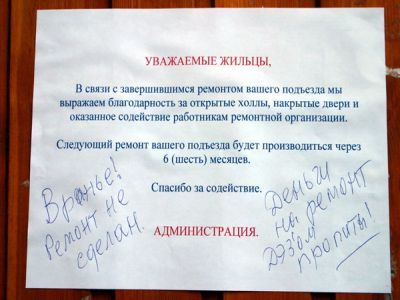 УВАЖАЕМЫЕ ЖИЛЬЦЫ,
В связи с завершившимся ремонтом вашего подъезда мы
выражаем благодарность за открытые холлы, накрытые двери и
оказанное содействие работникам ремонтной организации.
Следующий ремонт вашего подъезда будет производиться через
6 (шесть) месяцев.
Спасибо за содействие.
АДМИНИСТРАЦИЯ.
Вранье!
Ремонт не
сделан.
Деньги
на ремонт
ДЭЗ'ом
пропиты!